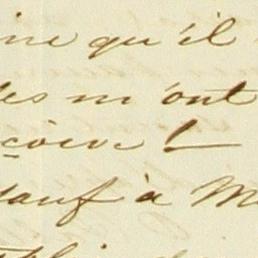 ine qu'il
des m'ont
çoive !—
sauf à M